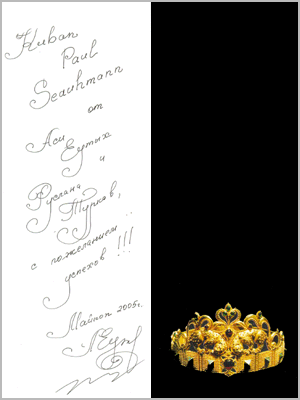 Kuban
Paul
Seauhmann
от
Аси
Еутых
и
Руслана
Туркав,
с пожеланием
успехов !!!
Майкоп 2005г.